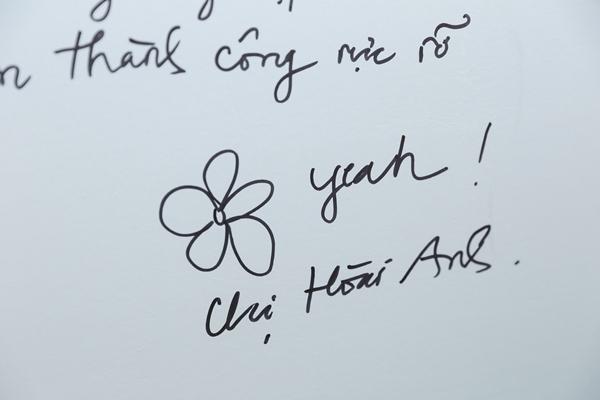 thành công rực rỡ
yeah !
Chị Hoài Anh.